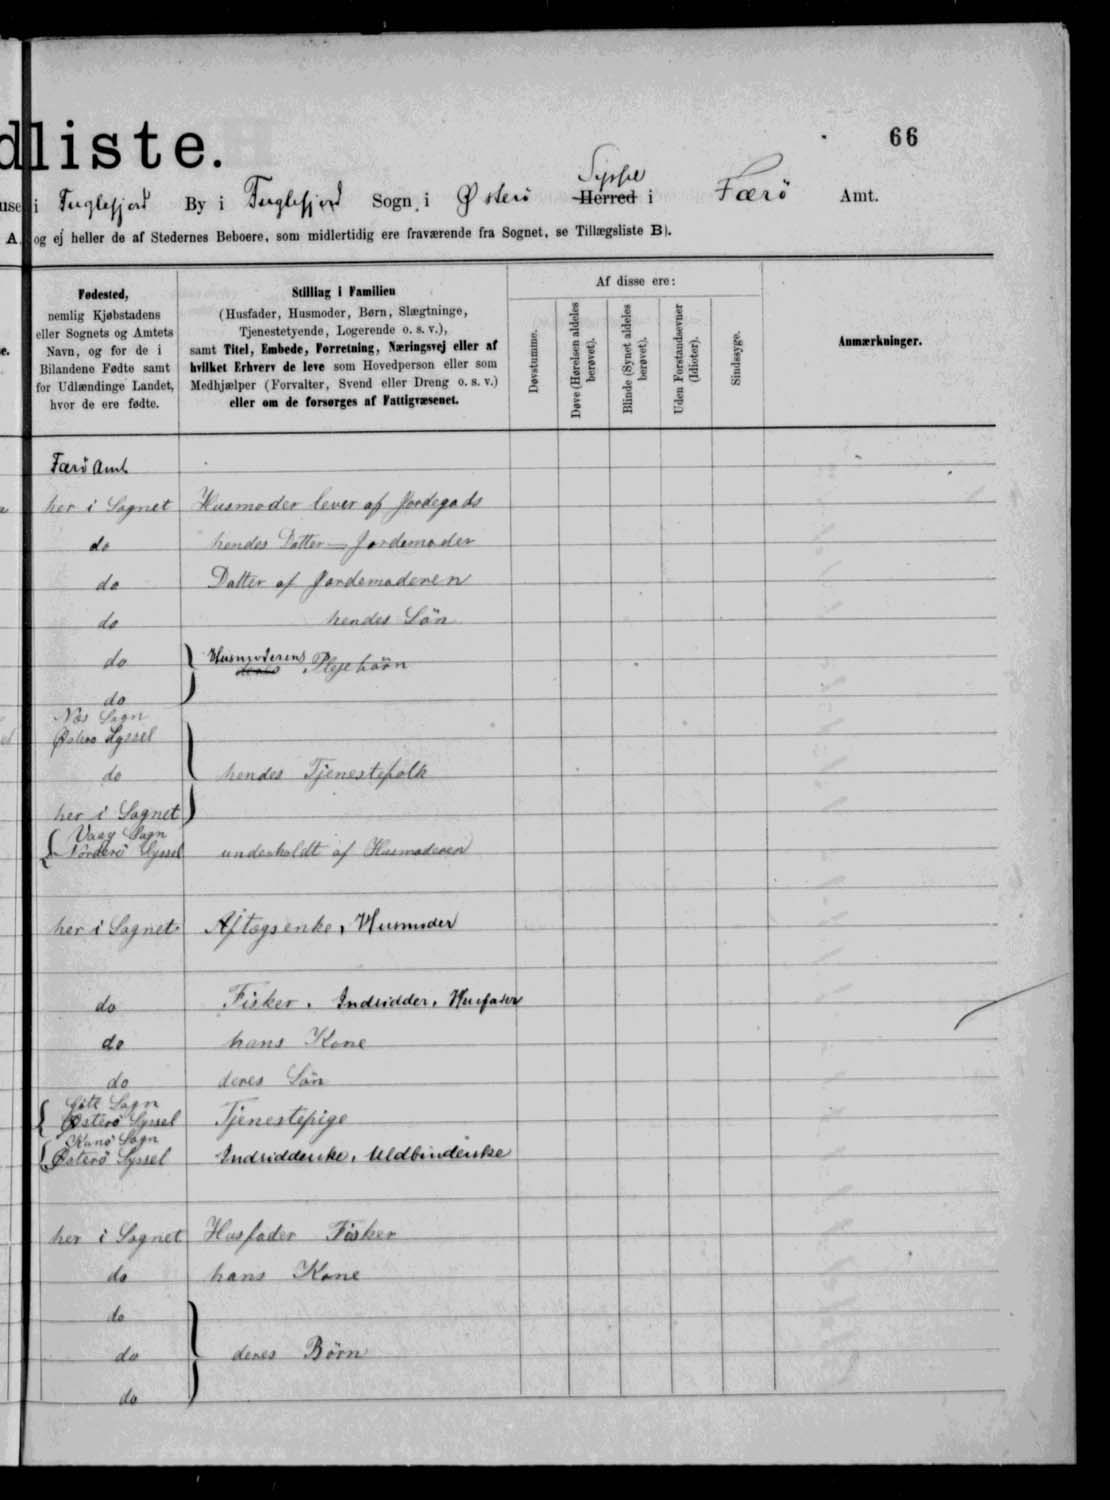 dliste.
66
use i Fuglefjord By i Fuglefjord Sogn i Østerö Syssel Herred i Færö Amt.
A og ej heller de af Stedernes Beboere, som midlertidig ere fraværende fra Sognet, se Tillægsliste B).
Fødested,
nemlig Kjøbstadens
eller Sognets og Amtets
Navn, og for de i
Bilandene Fødte samt
for Udlændinge Landet,
hvor de ere fødte.
Stilling i Familien
(Husfader, Husmoder, Børn, Slægtninge,
Tjenestetyende, Logerende o. s. v.),
samt Titel, Embede, Forretning, Næringsvej eller af
hvilket Erhverv de leve som Hovedperson eller som
Medhjælper (Forvalter, Svend eller Dreng o. s. v.)
eller om de forsørges af Fattigvæsenet.
Af disse ere:
Døvstumme.
Døve (Hørelsen aldeles
berøvet).
Blinde (Synet aldeles
berøvet).
Uden Forstandsevner
(Idioter).
Sindssyge.
Anmærkninger.
Færö Amt
her i Sognet Husmoder lever af Jordegods
do hendes Datter – Jordemoder
do Datter af Jordemoderen
do hendes Sön
do Husmoderens Plejebörn
do
Næs Sogn
Österö Syssel
do hendes Tjenestefolk
her i Sognet
Vaag Sogn
Norderö Syssel underholdt af Husmoderen
her i Sognet Aftægsenke, Husmoder
do Fisker. Indsidder. Husfader
do hans Kone
do deres Sön
Göte Sogn
Østerö Syssel Tjenestepige
Kunö Sogn
Østerö Syssel Indsidderske, Uldbinderske
her i Sognet Husfader Fisker
do hans Kone
do
do deres Börn
do